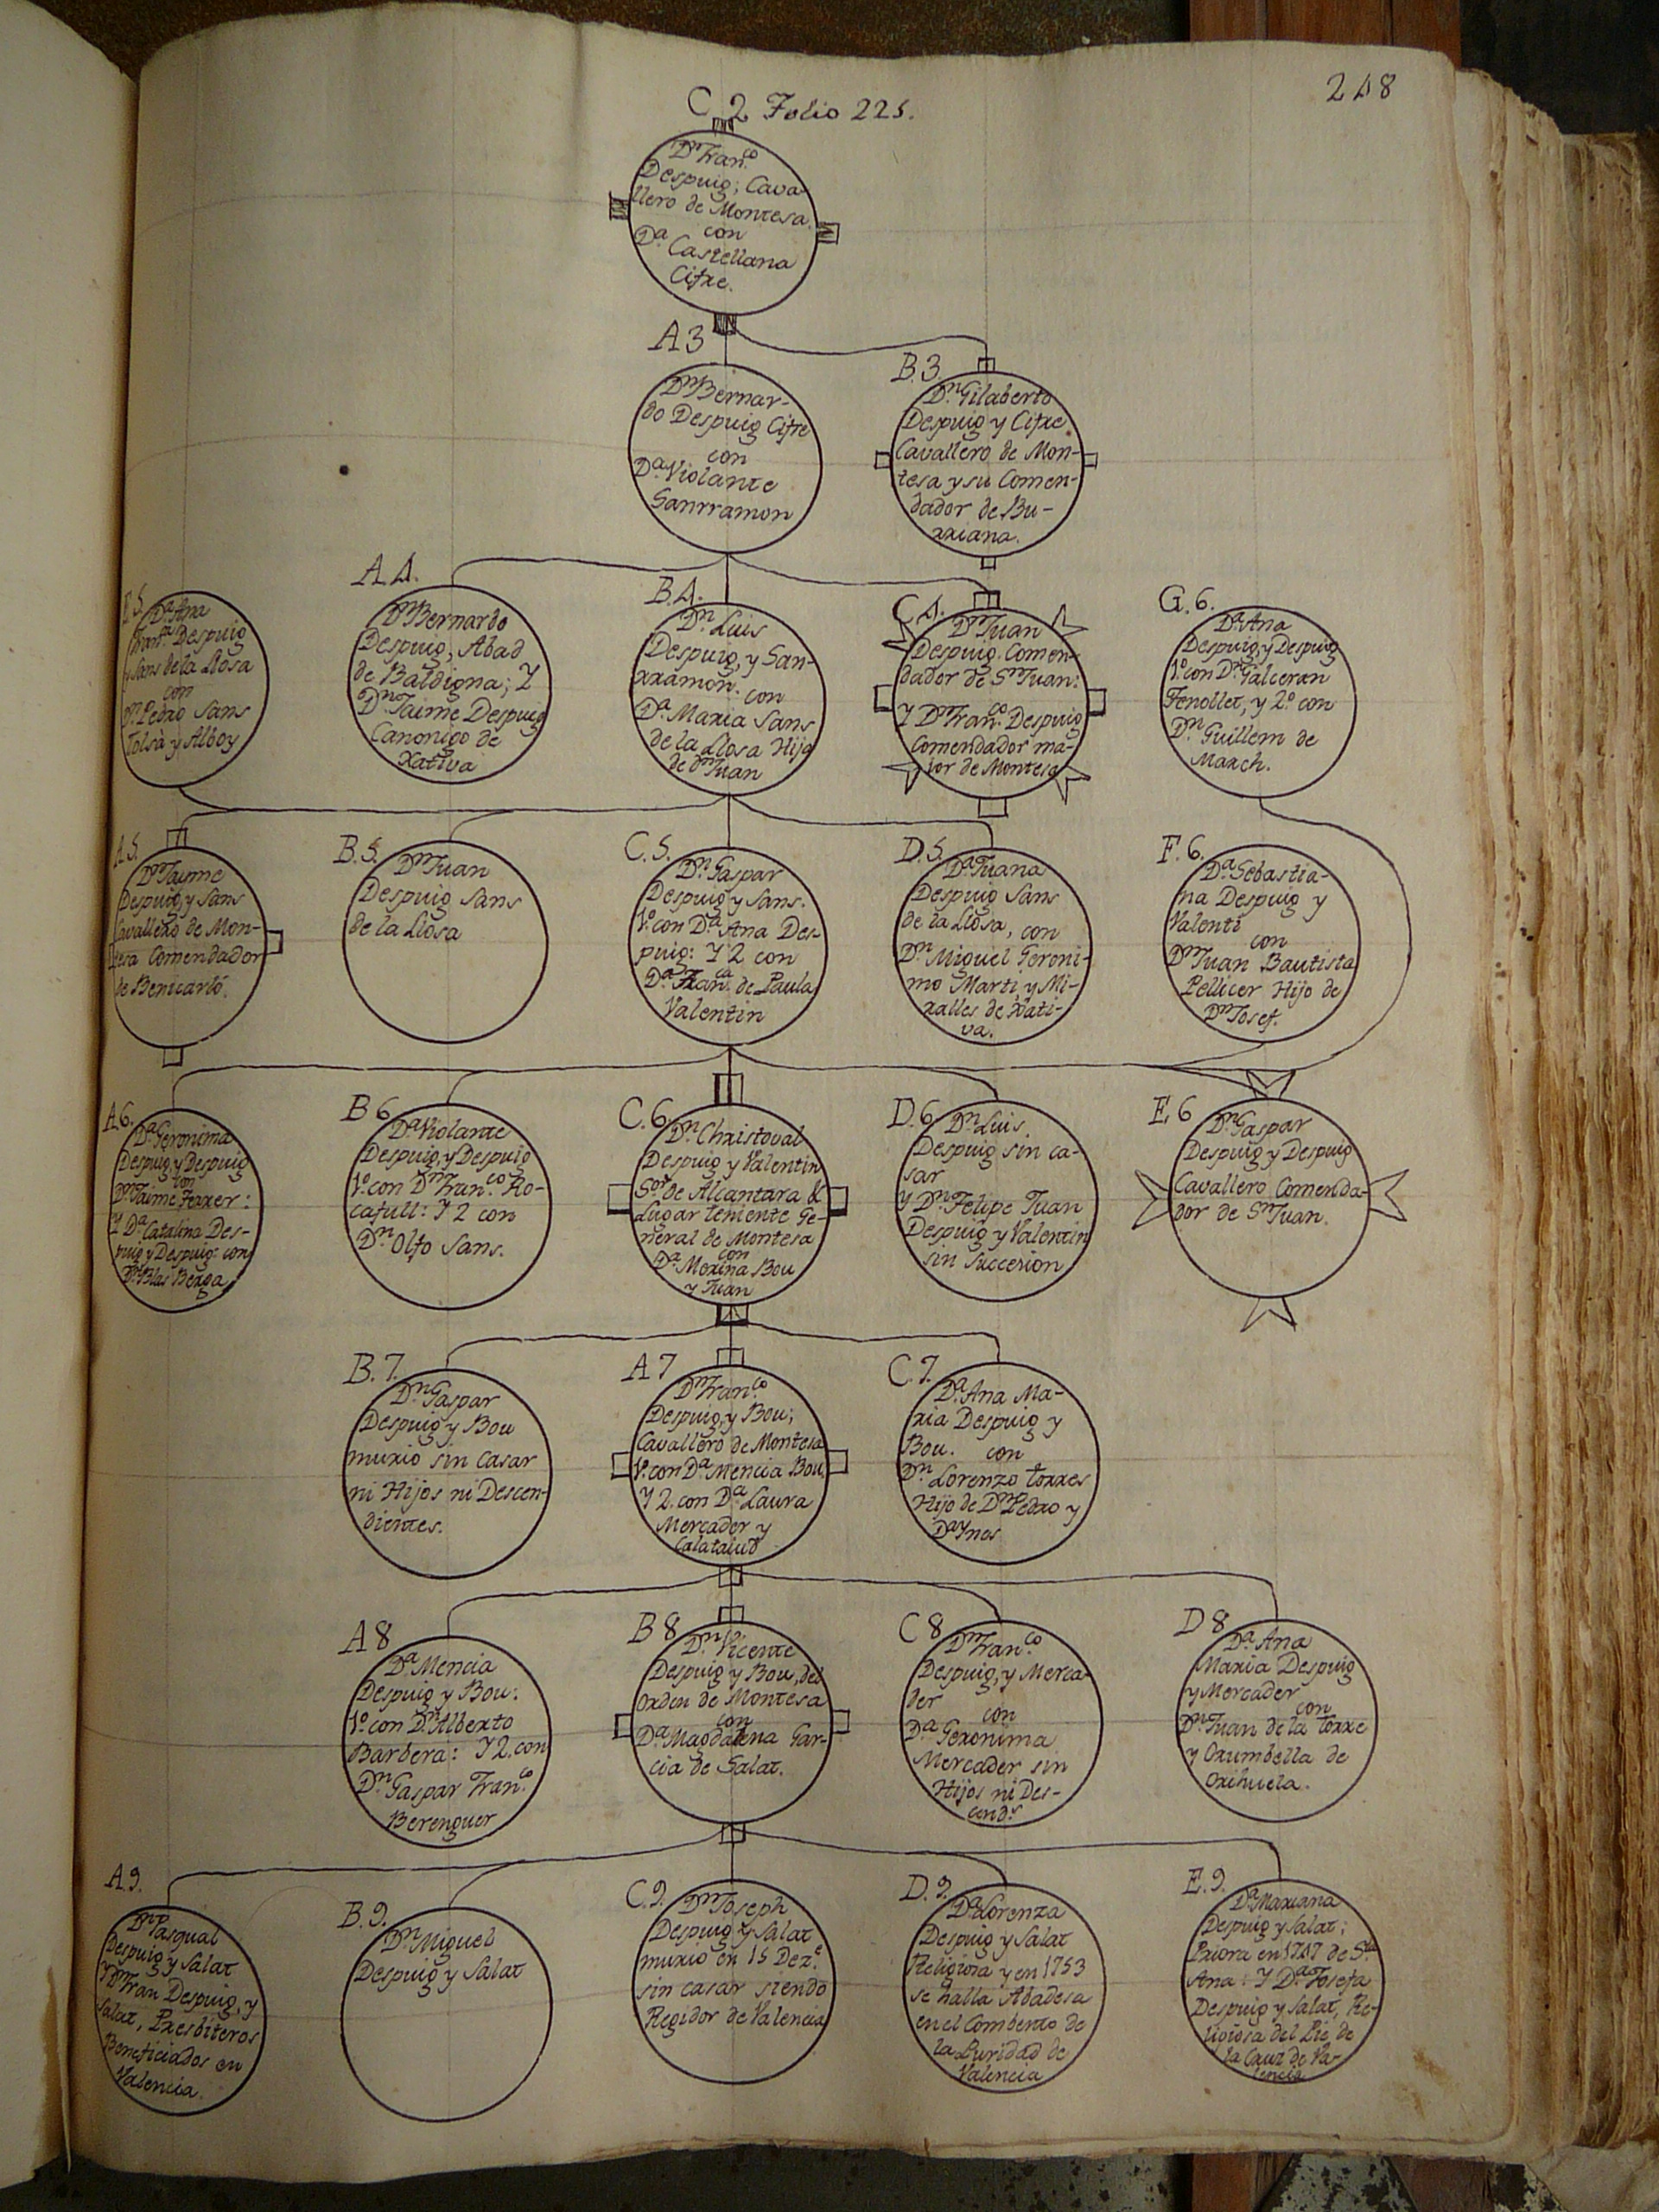 248
C 2 Folio 225.
Dn Fran.co
Despuig; Cava-
llero de Montesa.
con
Da. Castellana
Cifre.
A3
Dn Bernar-
do Despuig Cifre
con
Da. Violante
Sanrramon
B.3.
Dn. Gilaberto
Despuig y Cifre
Cavallero de Mon-
tesa y su Comen-
dador de Bu-
rriana.
F.5.
Da. Ana
Fran.ca Despuig
y Sans de la Llosa
con
Dn. Pedro Sans
Tolsà y Alboy
A.4.
Dn Bernardo
Despuig, Abad
de Baldigna; Y
Dn. Jaime Despuig
Canonigo de
Xativa
B.4.
Dn. Luis
Despuig, y San-
rramon. con
Da. Maria Sans
de la Llosa Hija
de Dn Juan
C.4.
Dn Juan
Despuig. Comen-
dador de Sn Juan:
Y Dn Fran.co Despuig
Comendador ma-
ior de Montesa
G.6.
Da. Ana
Despuig, y Despuig
1.o con Dn. Galceran
Fenollet, y 2.o con
Dn. Guillem de
March.
A.5.
Dn Jaime
Despuig, y Sans
Cavallero de Mon-
tesa Comendador
de Benicarló.
B.5.
Dn Juan
Despuig Sans
de la Llosa
C.5.
Dn. Gaspar
Despuig y Sans.
1.o con Da. Ana Des-
puig: Y 2 con
Da. Fran.ca de Paula
Valentin
D.5.
Da. Juana
Despuig Sans
de la Llosa, con
Dn. Miguel Geroni-
mo Marti, y Mi-
ralles de Xati-
va.
F.6.
Da. Sebastia-
na Despuig y
Valenti
con
Dn Juan Bautista
Pellicer Hijo de
Dn Josef.
A6.
Da. Geronima
Despuig, y Despuig
con
Dn. Jaime Ferrer:
Y Da. Catalina Des-
puig y Despuig: con
Dn. Blas Berga
B 6
Da. Violante
Despuig, y Despuig
1.o con Dn Fran.co Ro-
cafull: Y 2 con
Dn. Olfo Sans.
C.6.
Dn. Christoval
Despuig y Valentin
Sor. de Alcantara &
Lugar teniente Ge-
neral de Montesa
con
Da. Morina Bou
y Juan
D.6
Dn. Luis
Despuig sin ca-
sar
y Dn. Felipe Juan
Despuig y Valentin
sin Succesion
E.6
Dn. Gaspar
Despuig y Despuig
Cavallero Comenda-
dor de Sn Juan.
B.7.
Dn. Gaspar
Despuig y Bou
murió sin casar
ni Hijos ni Descen-
dientes.
A7
Dn Fran.co
Despuig, y Bou;
Cavallero de Montesa
1.o con Da. Mencia Bou,
Y 2. con Da. Laura
Mercader y
Calataiud
C.7.
Da. Ana Ma-
ria Despuig y
Bou. con
Dn. Lorenzo torres
Hijo de Dn Pedro y
Da Ynes
A8
Da. Mencia
Despuig y Bou:
1.o con Dn. Alberto
Barbera: Y 2. con
Dn. Gaspar Fran.co
Berenguer
B 8
Dn. Vicente
Despuig y Bou, del
Orden de Montesa
con
Da. Magdalena Gar-
cia de Salat.
C 8
Dn Fran.co
Despuig, y Merca-
der
con
Da. Geronima
Mercader sin
Hijos ni Des-
cend.s
D 8
Da. Ana
Maria Despuig
y Mercader
con
Dn. Juan de la torre
y Orumbella de
Orihuela.
A.9.
Dn Pasqual
Despuig y Salat
Y Dn Fran Despuig, y
Salat, Presbiteros
Beneficiados en
Valencia.
B.9.
Dn. Miguel
Despuig y Salat
C.9.
Dn Joseph
Despuig y Salat
murio en 15 Dez.e
sin casar siendo
Regidor de Valencia
D.9.
Da. Lorenza
Despuig y Salat
Religiosa y en 1753
se halla Abadesa
en el Combento de
la Puridad de
Valencia
E.9.
Da. Mariana
Despuig y Salat;
Priora en 1747 de Sta
Ana: Y Da. Josefa
Despuig y Salat, Re-
ligiosa del Pie de
la Cruz de Va-
lencia